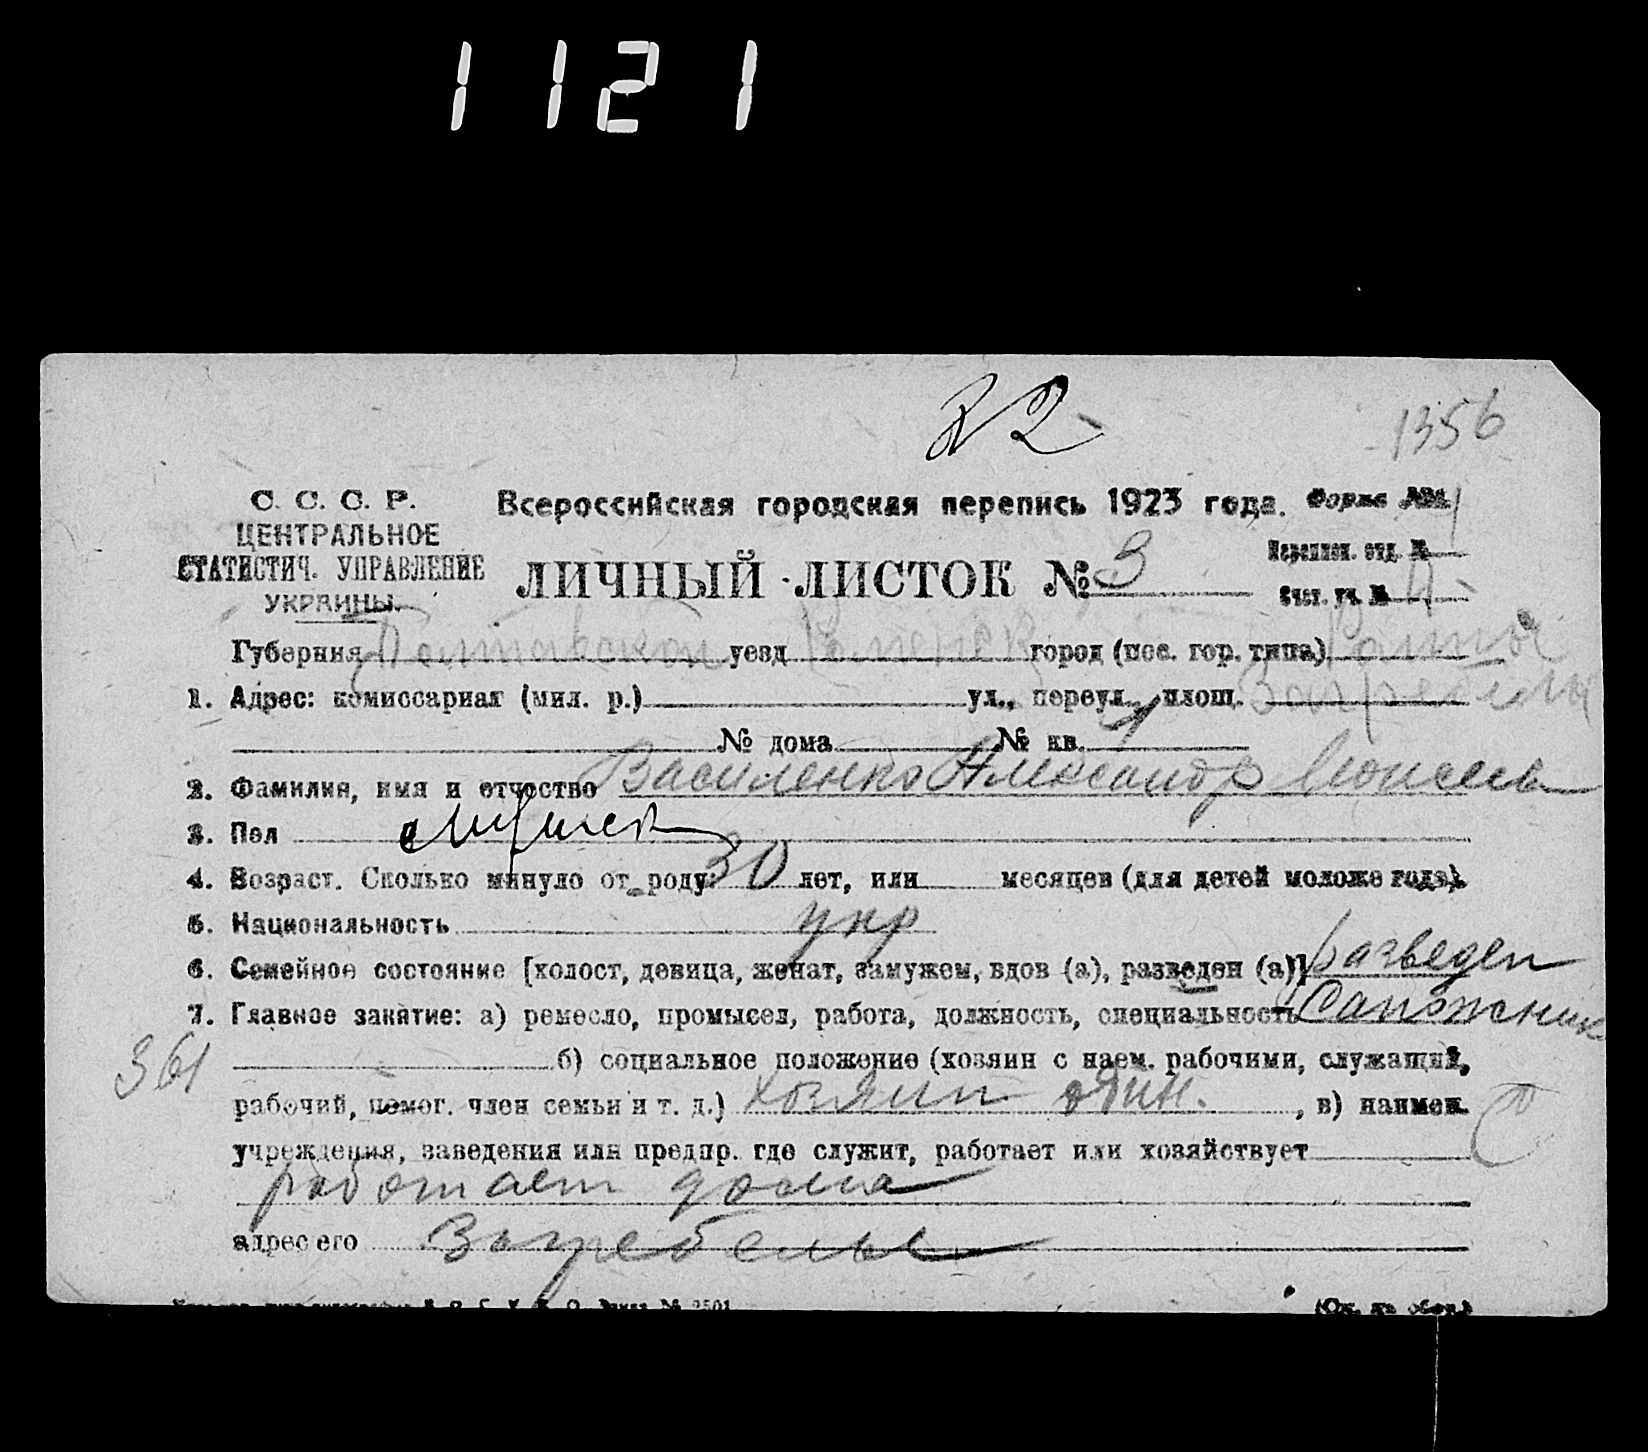 1121
32
1356
С. С. С. Р.
ЦЕНТРАЛЬНОЕ
СТАТИСТИЧ. УПРАВЛЕНИЕ
УКРАИНЫ.
Всероссийская городская перепись 1923 года. Форма №1
ЛИЧНЫЙ ЛИСТОК № 3
Переписн. отд. №
Счет. уч. №
Губерния Полтавской уезд Роменск город (пос. гор. типа) Ромны
1. Адрес: комиссариат (мил. р.) ул., переул., площ. Загребелья
№ дома № кв. 1
2. Фамилия, имя и отчество Василенко Александр Моисеев
3. Пол мужчск
4. Возраст. Сколько минуло от роду: 30 лет, или месяцев (для детей моложе года).
5. Национальность укр
6. Семейное состояние [холост, девица, женат, замужем, вдов (а), разведен (а)] разведен
7. Главное занятие: а) ремесло, промысел, работа, должность, специальность Сапожник
361
б) социальное положение (хозяин с наем. рабочими, служащий,
рабочий, помог. член семьи и т. д.) хозяин один. , в) наимен.
учреждения, заведения или предпр. где служит, работает или хозяйствует
работает дома
адрес его Загребелье
(См. на обор.)